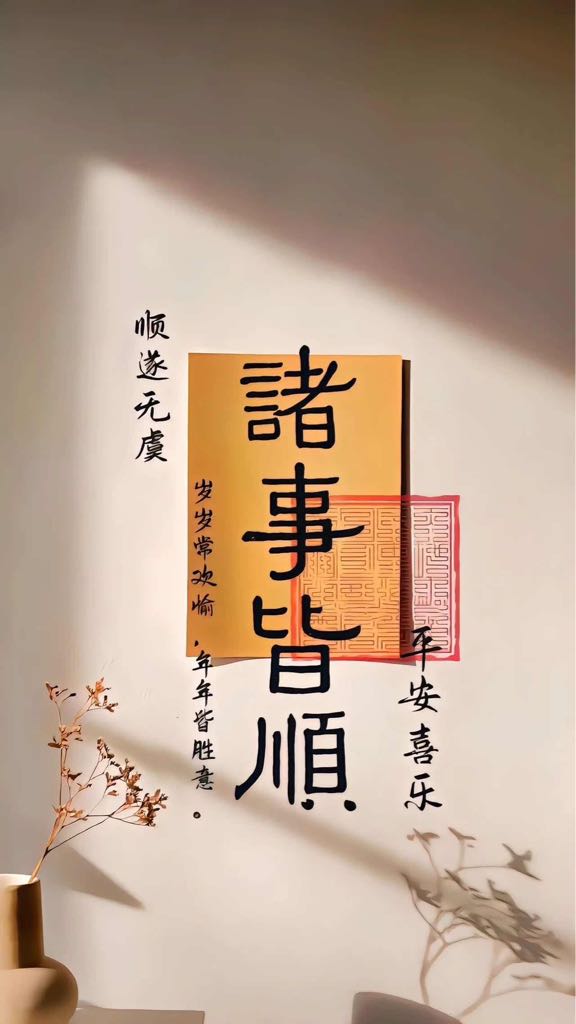 諸事皆順
順遂无虞
岁岁常欢愉,年年皆胜意。
平安喜乐